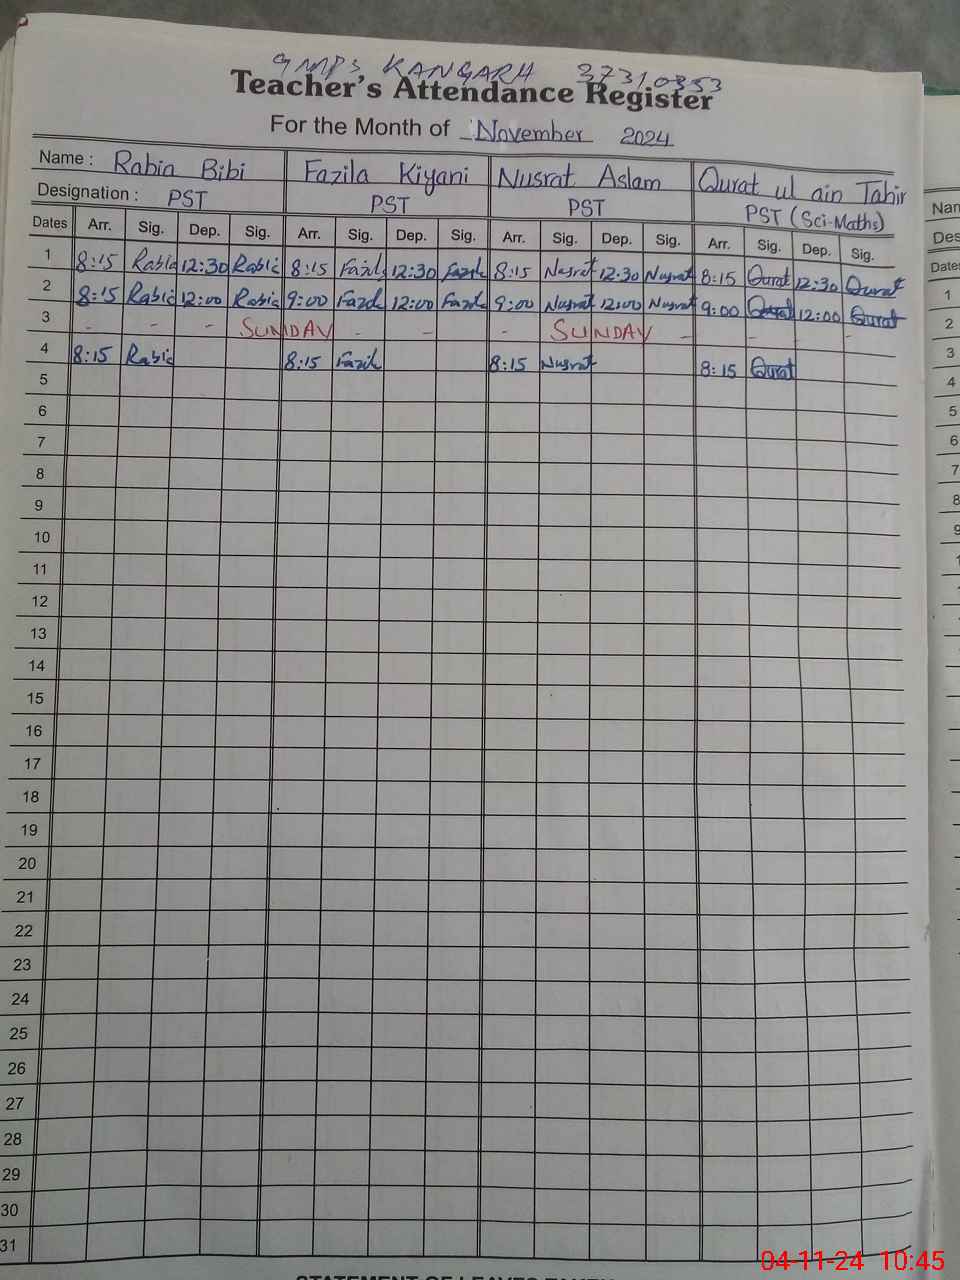 GMPS KANGARH 37310353
Teacher's Attendance Register
For the Month of November 2024
Name : Rabia Bibi Fazila Kiyani Nusrat Aslam Qurat ul ain Tahir
Designation : PST PST PST PST (Sci-Maths)
Dates Arr. Sig. Dep. Sig. Arr. Sig. Dep. Sig. Arr. Sig. Dep. Sig. Arr. Sig. Dep. Sig.
1 8:15 Rabia 12:30 Rabia 8:15 Fazila 12:30 Fazila 8:15 Nusrat 12:30 Nusrat 8:15 Qurat 12:30 Qurat
2 8:15 Rabia 12:00 Rabia 9:00 Fazila 12:00 Fazila 9:00 Nusrat 12:00 Nusrat 9:00 Qurat 12:00 Qurat
3 - - - SUNDAY - - - - SUNDAY - - - -
4 8:15 Rabia 8:15 Fazila 8:15 Nusrat 8:15 Qurat
5
6
7
8
9
10
11
12
13
14
15
16
17
18
19
20
21
22
23
24
25
26
27
28
29
30
31
Nam
Des
Dates
1
2
3
4
5
6
7
8
9
04-11-24 10:45